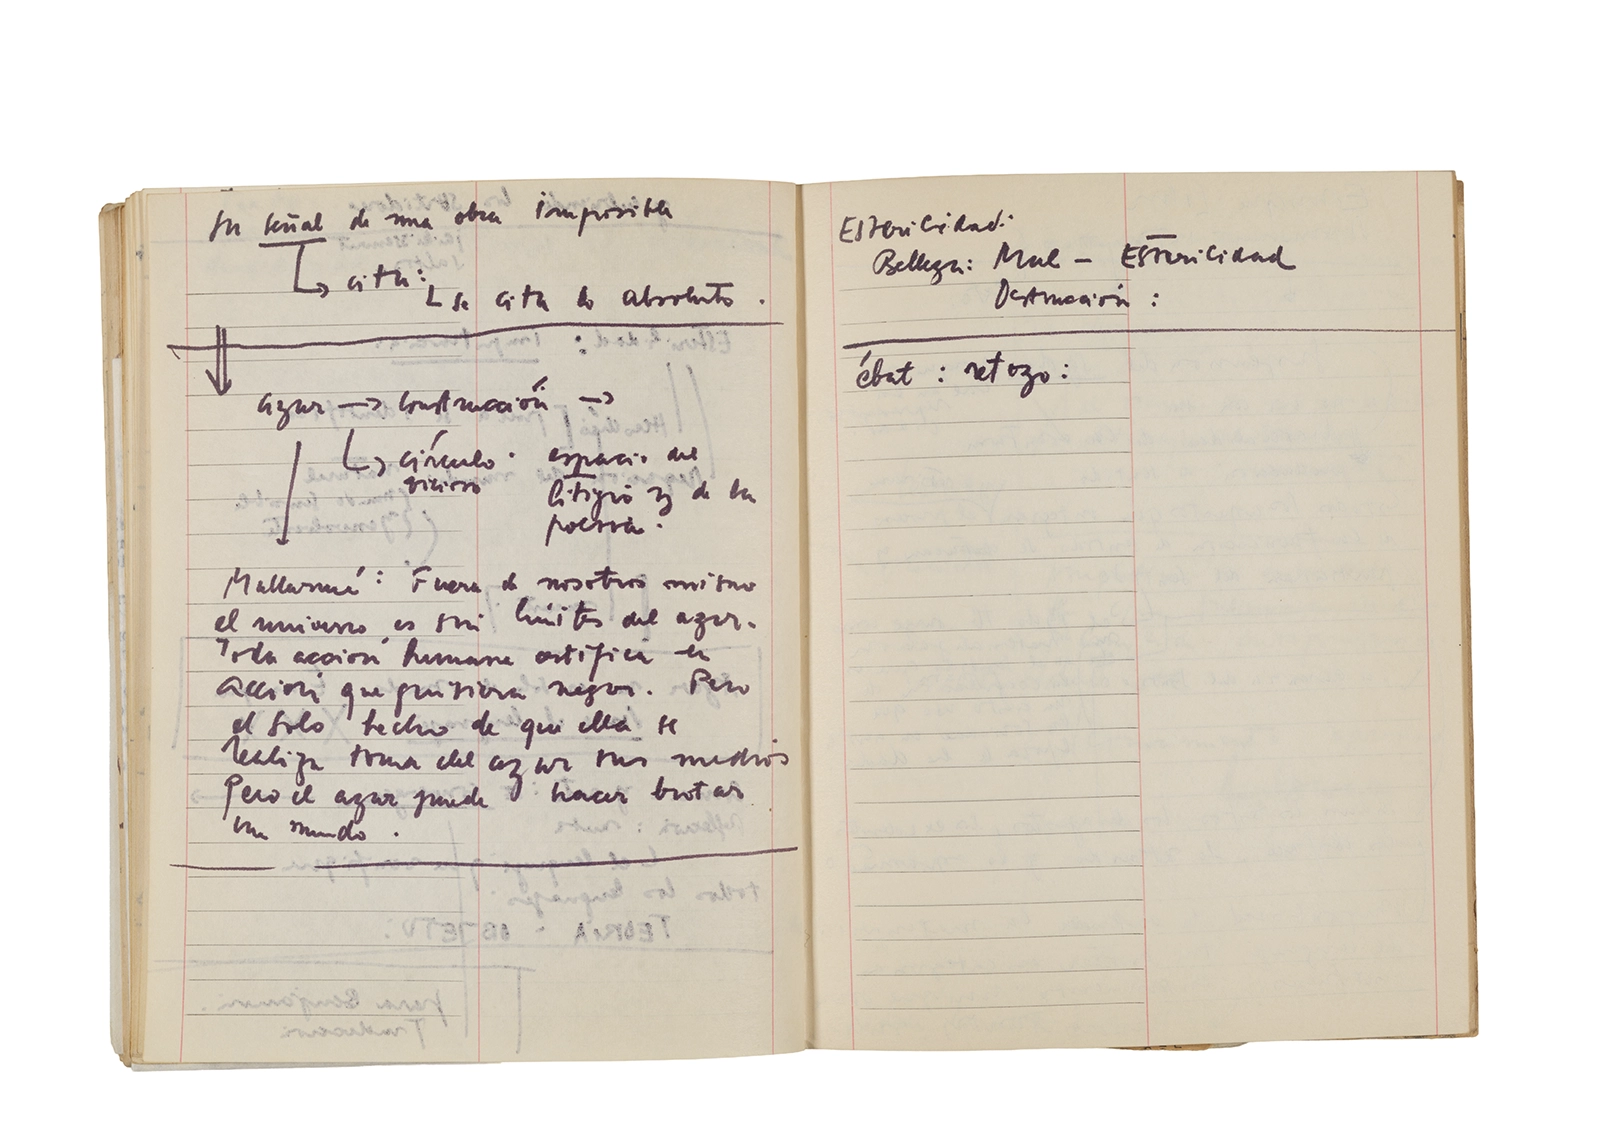 su señal de una obra imposible
cita:
se cita lo absoluto.
azar → construcción →
círculo espacio del
vicioso litigio y de la
poesía.
Mallarmé: Fuera de nosotros mismo
el universo es sin límites del azar.
Toda acción humana ratifica la
acción que quisiera negar. Pero
el solo hecho de que ella se
realiza toma del azar sus medios
Pero el azar puede hacer brotar
un mundo.
Esterilidad:
Belleza: Mal - Esterilidad
Destrucción:
ébat: retozo: